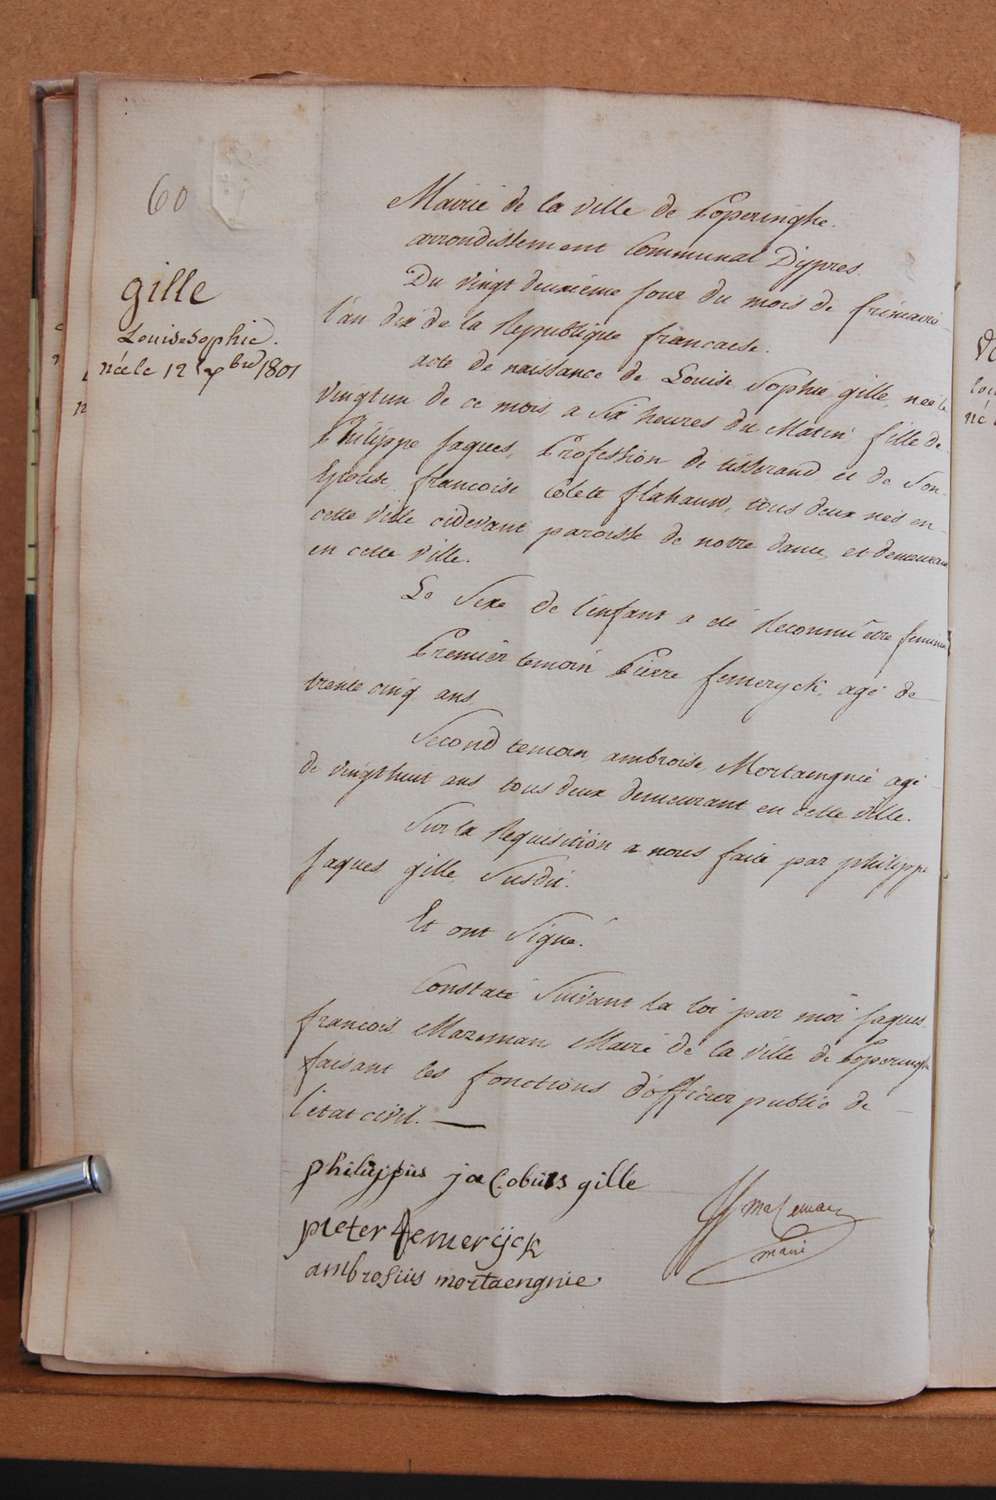 60
gille
Louise Sophie.
née le 12 Xbre 1801
Mairie de la ville de Poperinghe.
arrondissement Communal D'ypres.
Du vingt deuxième jour du mois de frimaire
l'an dix de la Republique francaise.
acte de naissance de Louise Sophie gille, née le
vingtun de ce mois, a Six heures du Matin fille de
Philippe Jaques, Profession de tisserand et de Son
Epouse francoise Colett flahauw, tous deux nés en
cette ville cidevant paroisse de notre dame, et demeurant
en cette ville.
Le Sexe de l'enfant a été Reconnu être feminin
Premier temoin Pierre femeryck, agé de
trente cinq ans
Second temoin ambroise Mortaengnie agé
de vingthuit ans tous deux demeurant en cette ville.
Sur la Requisition a nous faite par philippe
Jaques gille Susdit.
Et ont Signé.
Constaté Suivant la loi par moi Jaques
francois Mazeman Maire de la ville de Poperinghe
faisant les fonctions d'officier public de
l'etat civil.
philippus jacobus gille
pieter femerijck
ambrosius mortaengnie
Mazeman
maire